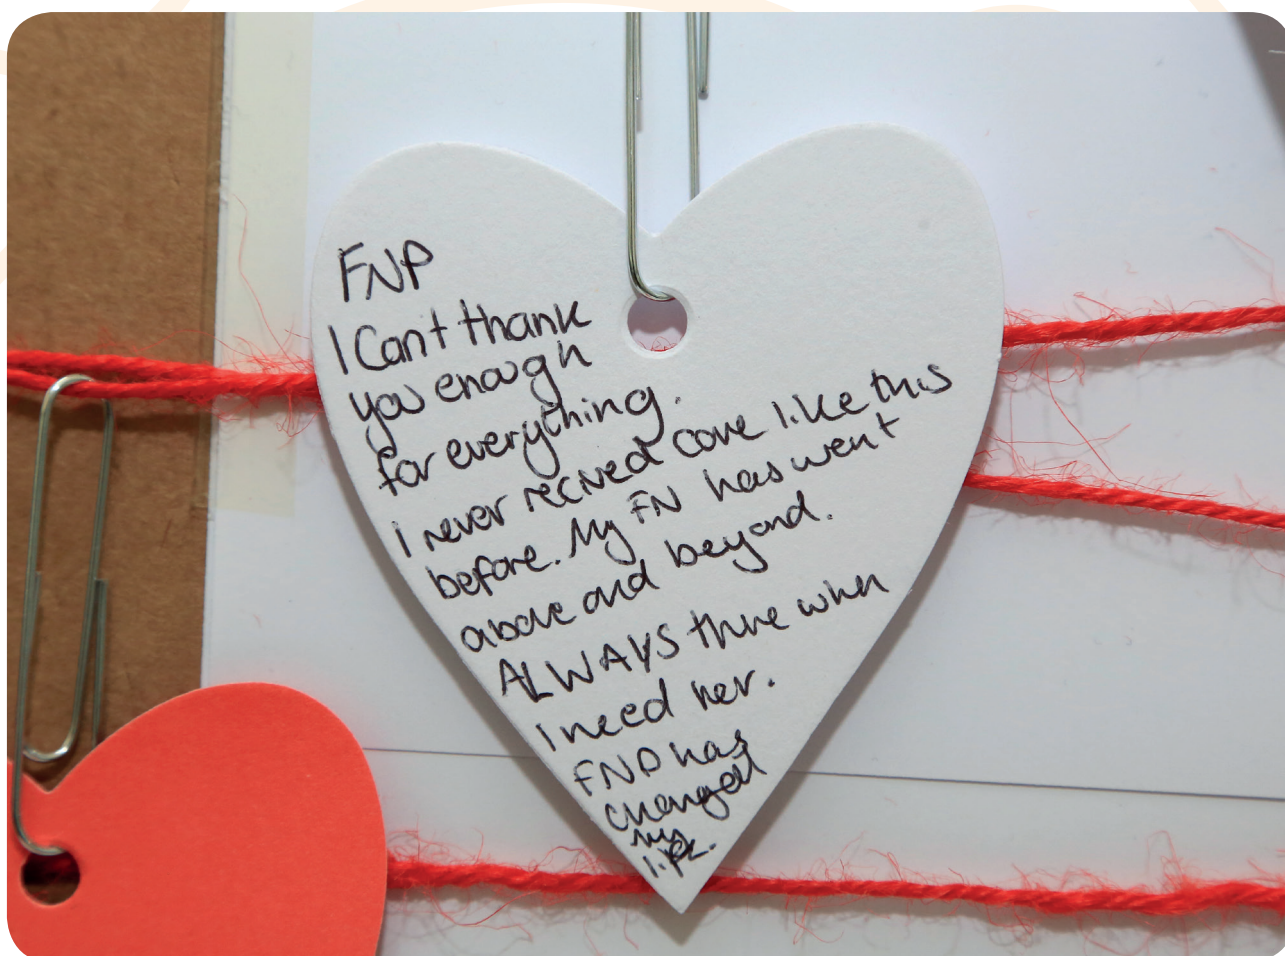 FNP
I Can't thank
you enough
for everything.
I never recived care like this
before. My FN has went
above and beyond.
ALWAYS thre when
I need her.
FNP has
changed
my
life.